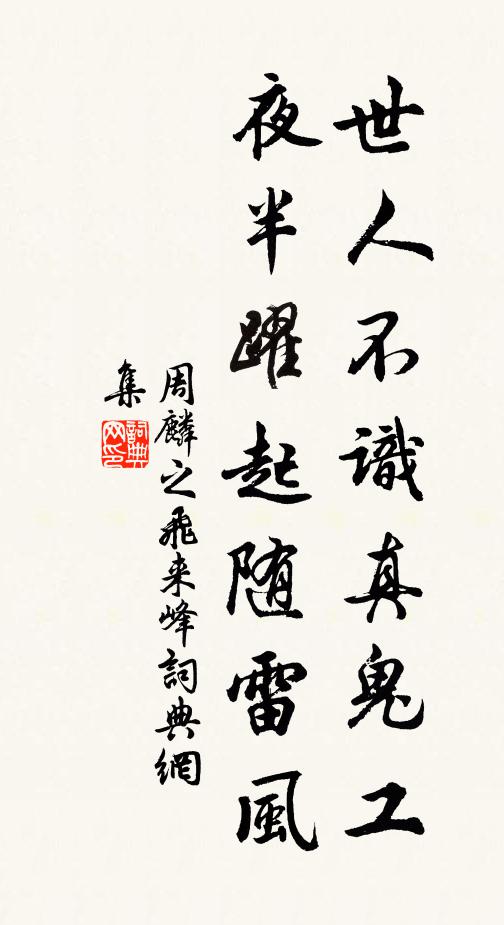 世人不識真鬼工
夜半躍起随雷風
周麟之飛来峰詞典網
集
詞典网印